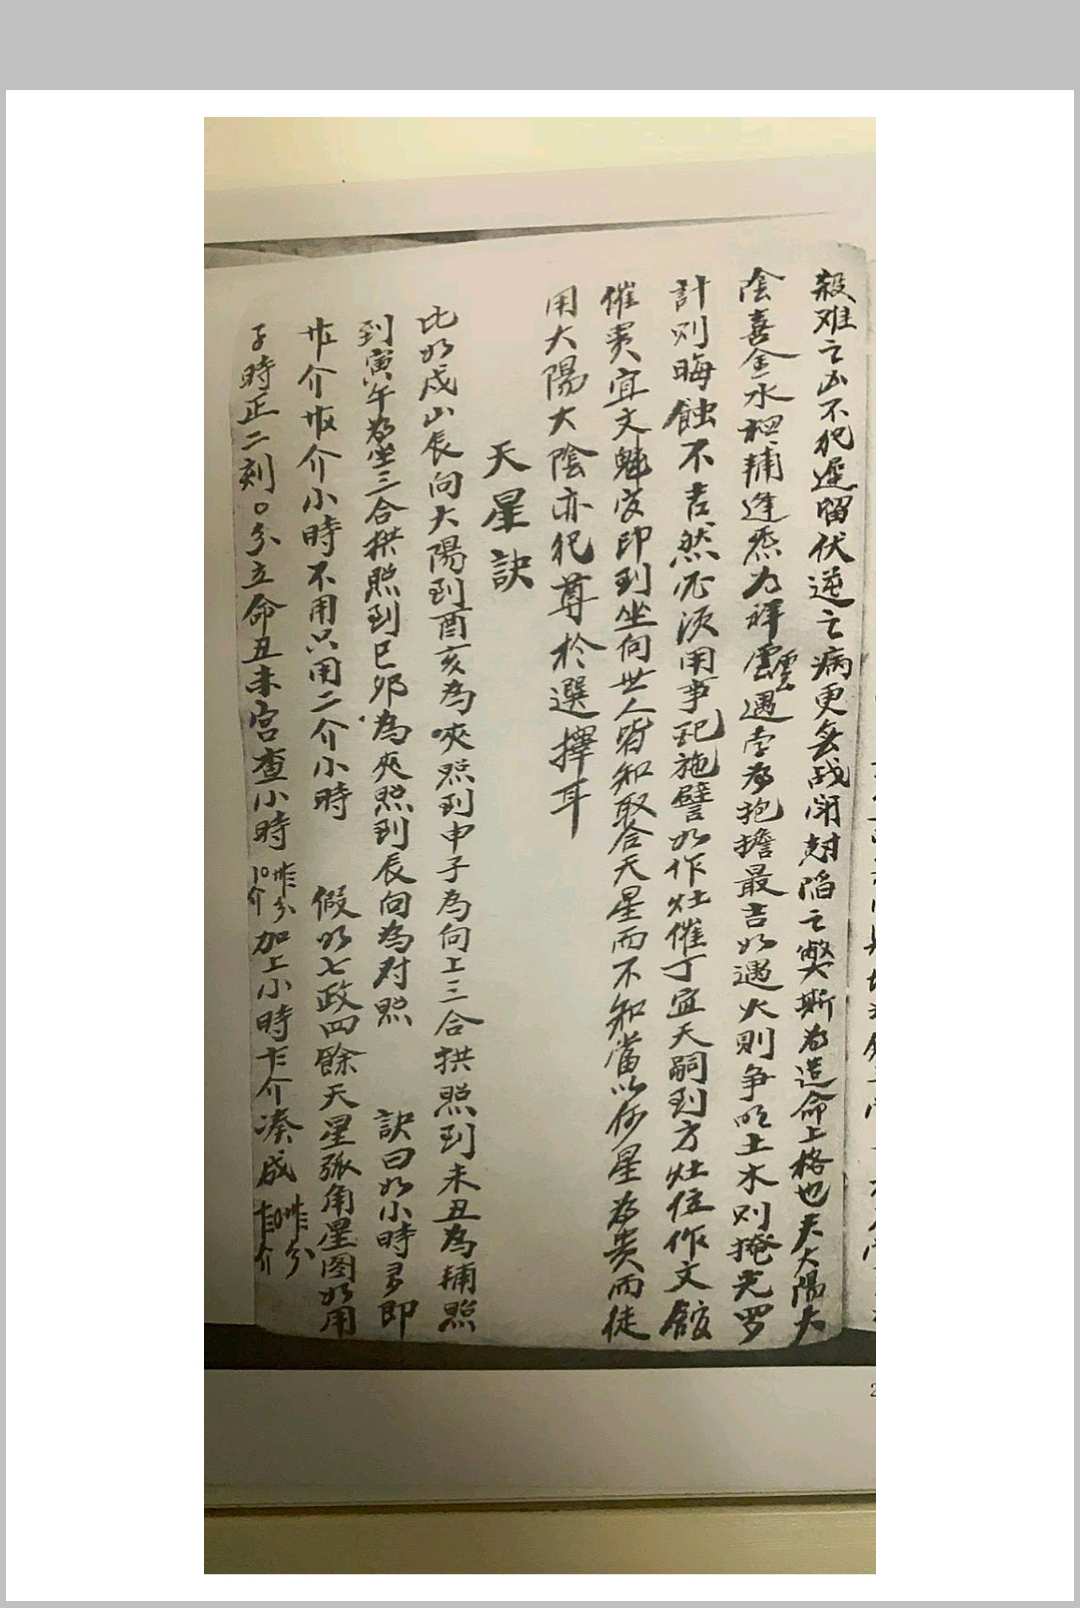 殺难之凶不犯遲畄伏逆之病更無战闭尅陷之獘斯為造命上格也夫大陽大
陰喜金水相輔逢炁为祥雲遇孛為抱擔最吉如遇火則争明土木则掩光罗
計则晦蝕不吉然必湏用事配施譬如作灶催丁宜天嗣到方灶位作文館
催貴宜文魁官印到坐向世人皆知取合天星而不知當以何星為貴而徒
用大陽大陰亦犯尊於選擇耳
天星訣
比如戍山辰向大陽到酉亥為夾照到申子為向上三合拱照到未丑為輔照
到寅午為坐三合拱照到巳夘為夾照到辰向為对照 訣曰如小時多即
介 介小時不用只用二介小時 假如七政四餘天星弧角星图如用
子時正二刻〇分立命丑未宫查小時 分 介加上小時 介凑成 分 介